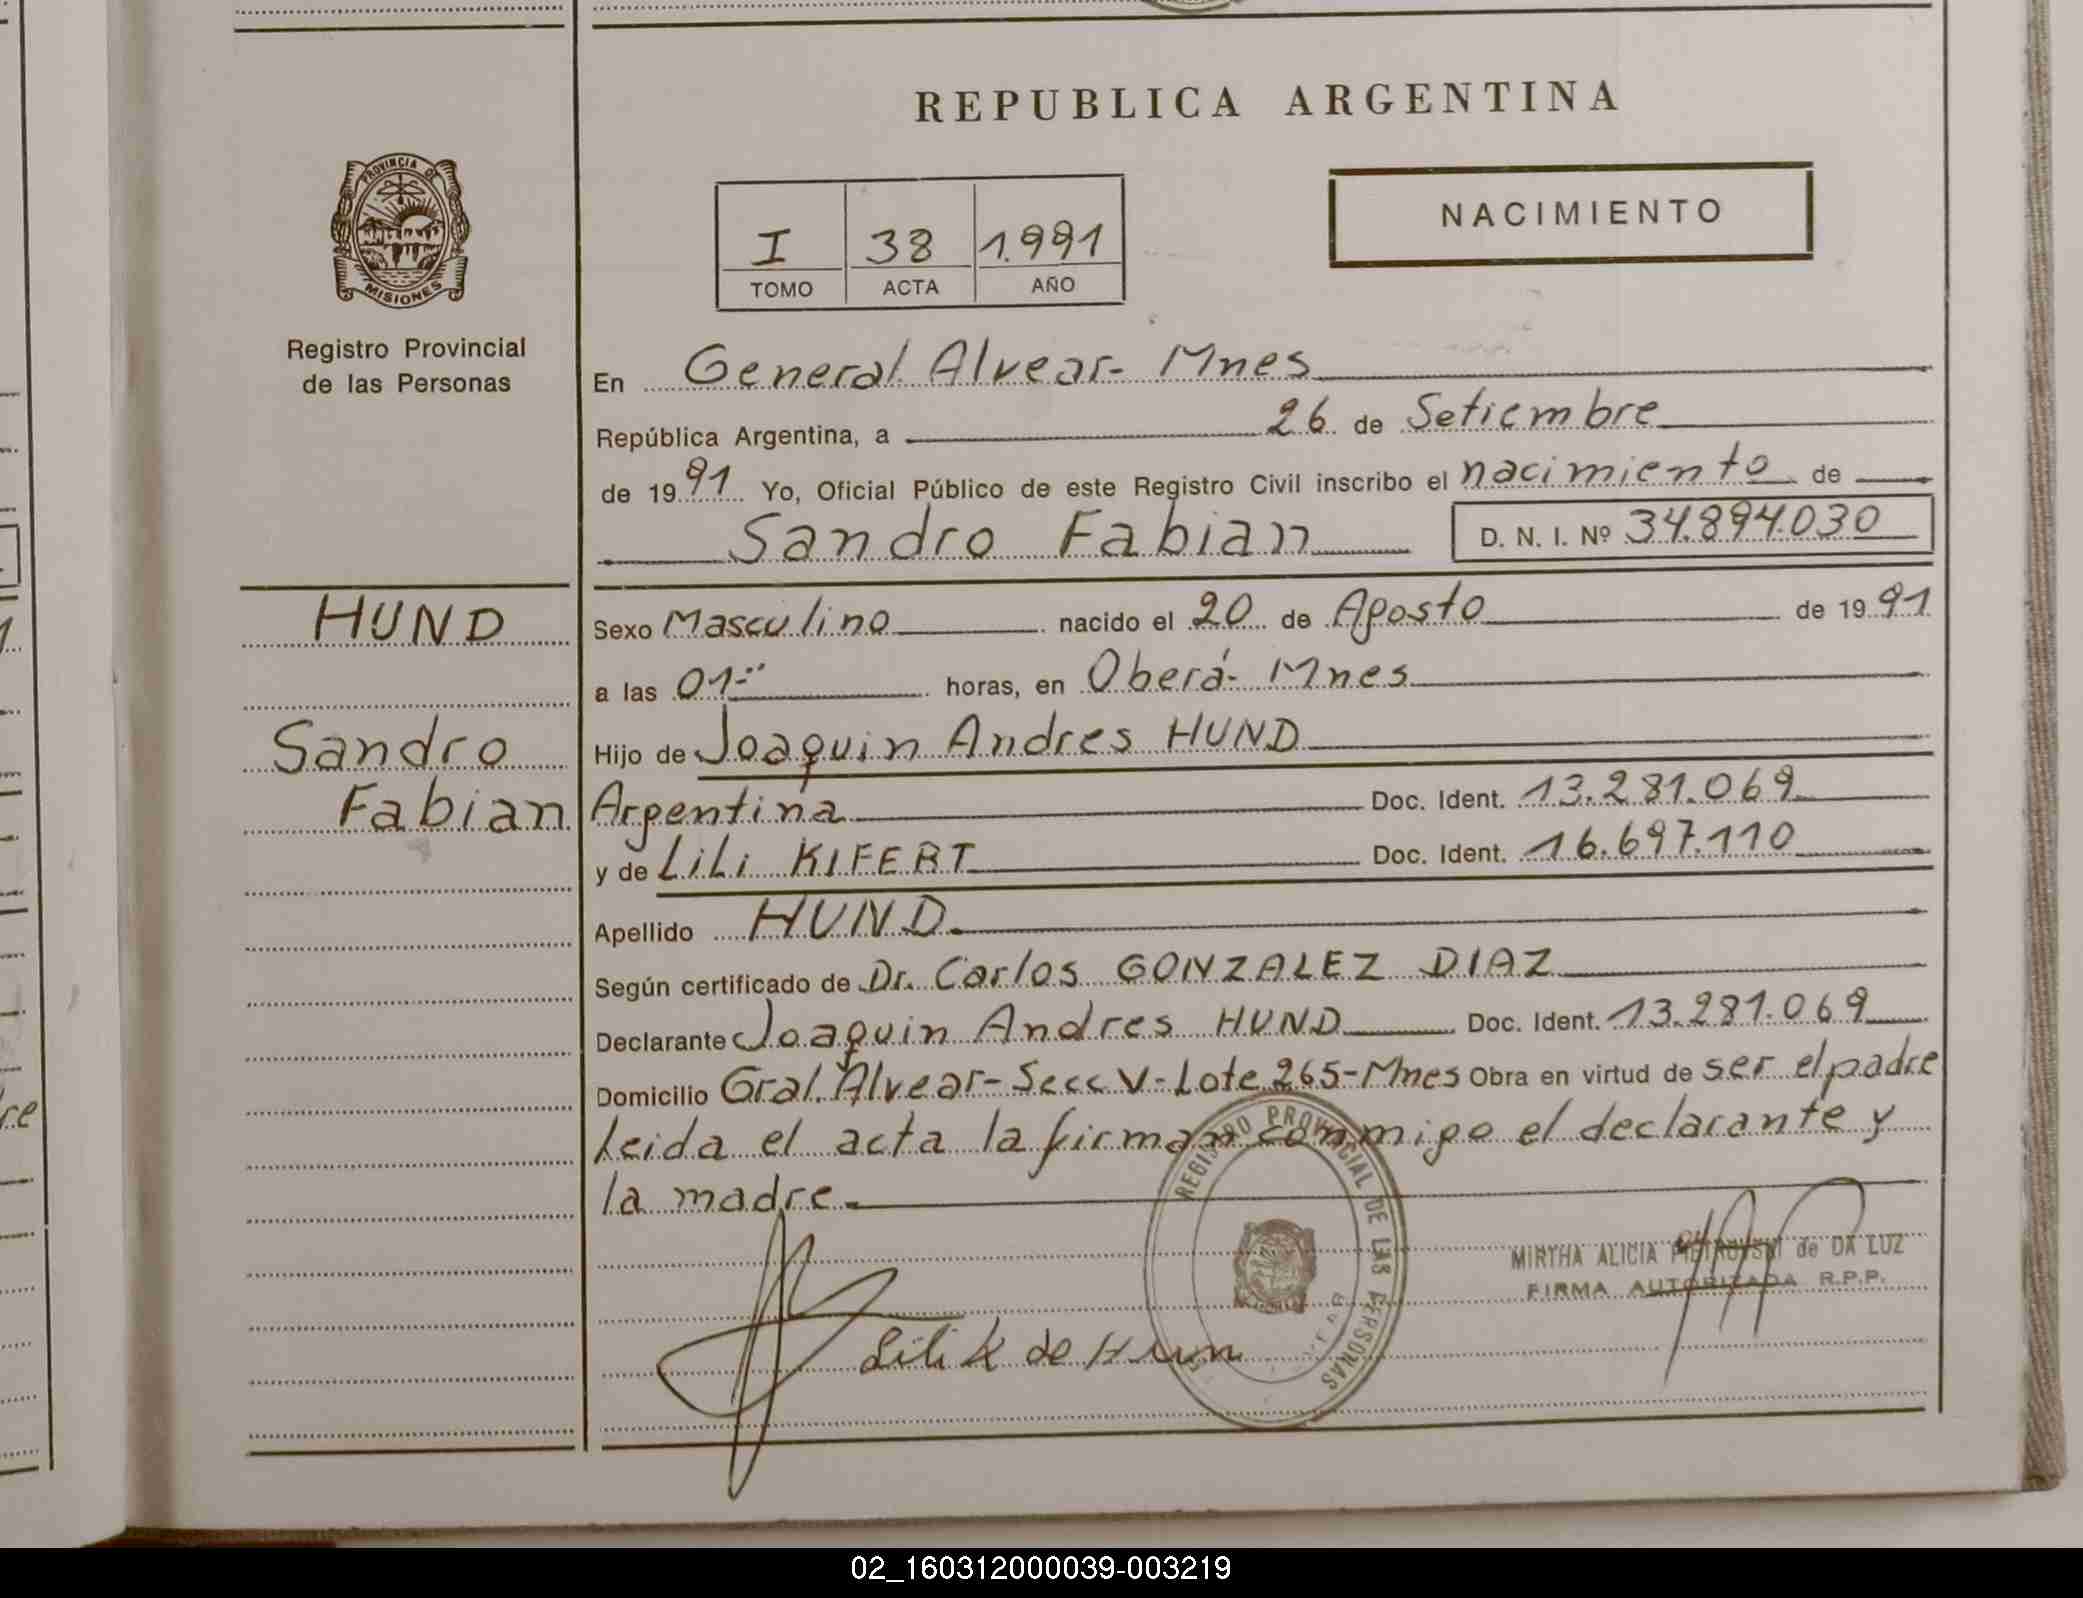 REPUBLICA ARGENTINA
PROVINCIA DE
MISIONES
Registro Provincial
de las Personas
I 38 1.991
TOMO ACTA AÑO
NACIMIENTO
En General Alvear- Mnes
República Argentina, a 26 de Setiembre
de 1991 Yo, Oficial Público de este Registro Civil inscribo el nacimiento de
Sandro Fabian D. N. I. Nº 34.894.030
HUND
Sandro
Fabian
Sexo Masculino nacido el 20 de Agosto de 1991
a las 01-" horas, en Oberá- Mnes
Hijo de Joaquin Andres HUND
Argentina Doc. Ident. 13.281.069
y de LiLi KIFERT Doc. Ident. 16.697.110
Apellido HUND
Según certificado de Dr. Carlos GONZALEZ DIAZ
Declarante Joaquin Andres HUND Doc. Ident. 13.281.069
Domicilio Gral. Alvear- Secc V- Lote 265- Mnes Obra en virtud de ser el padre
Leida el acta la firman conmigo el declarante y
la madre.
REGISTRO PROVINCIAL DE LAS PERSONAS
MIRTHA ALICIA de DA LUZ
FIRMA AUTORIZADA R.P.P.
Lili K de Hun
re
02_160312000039-003219